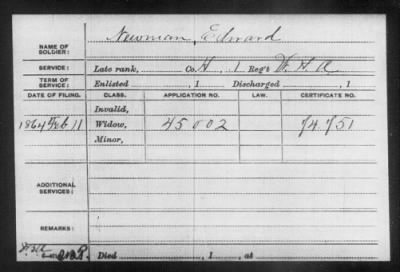 Newman, Edward
NAME OF SOLDIER:
SERVICE: Late rank, Co. H, 1 Reg't W. H. A.
TERM OF SERVICE: Enlisted , 1 Discharged , 1
DATE OF FILING. CLASS. APPLICATION NO. LAW. CERTIFICATE NO.
Invalid,
1864 Feb 11 Widow, 45002 74751
Minor,
ADDITIONAL SERVICES:
REMARKS:
Died , 1 , at